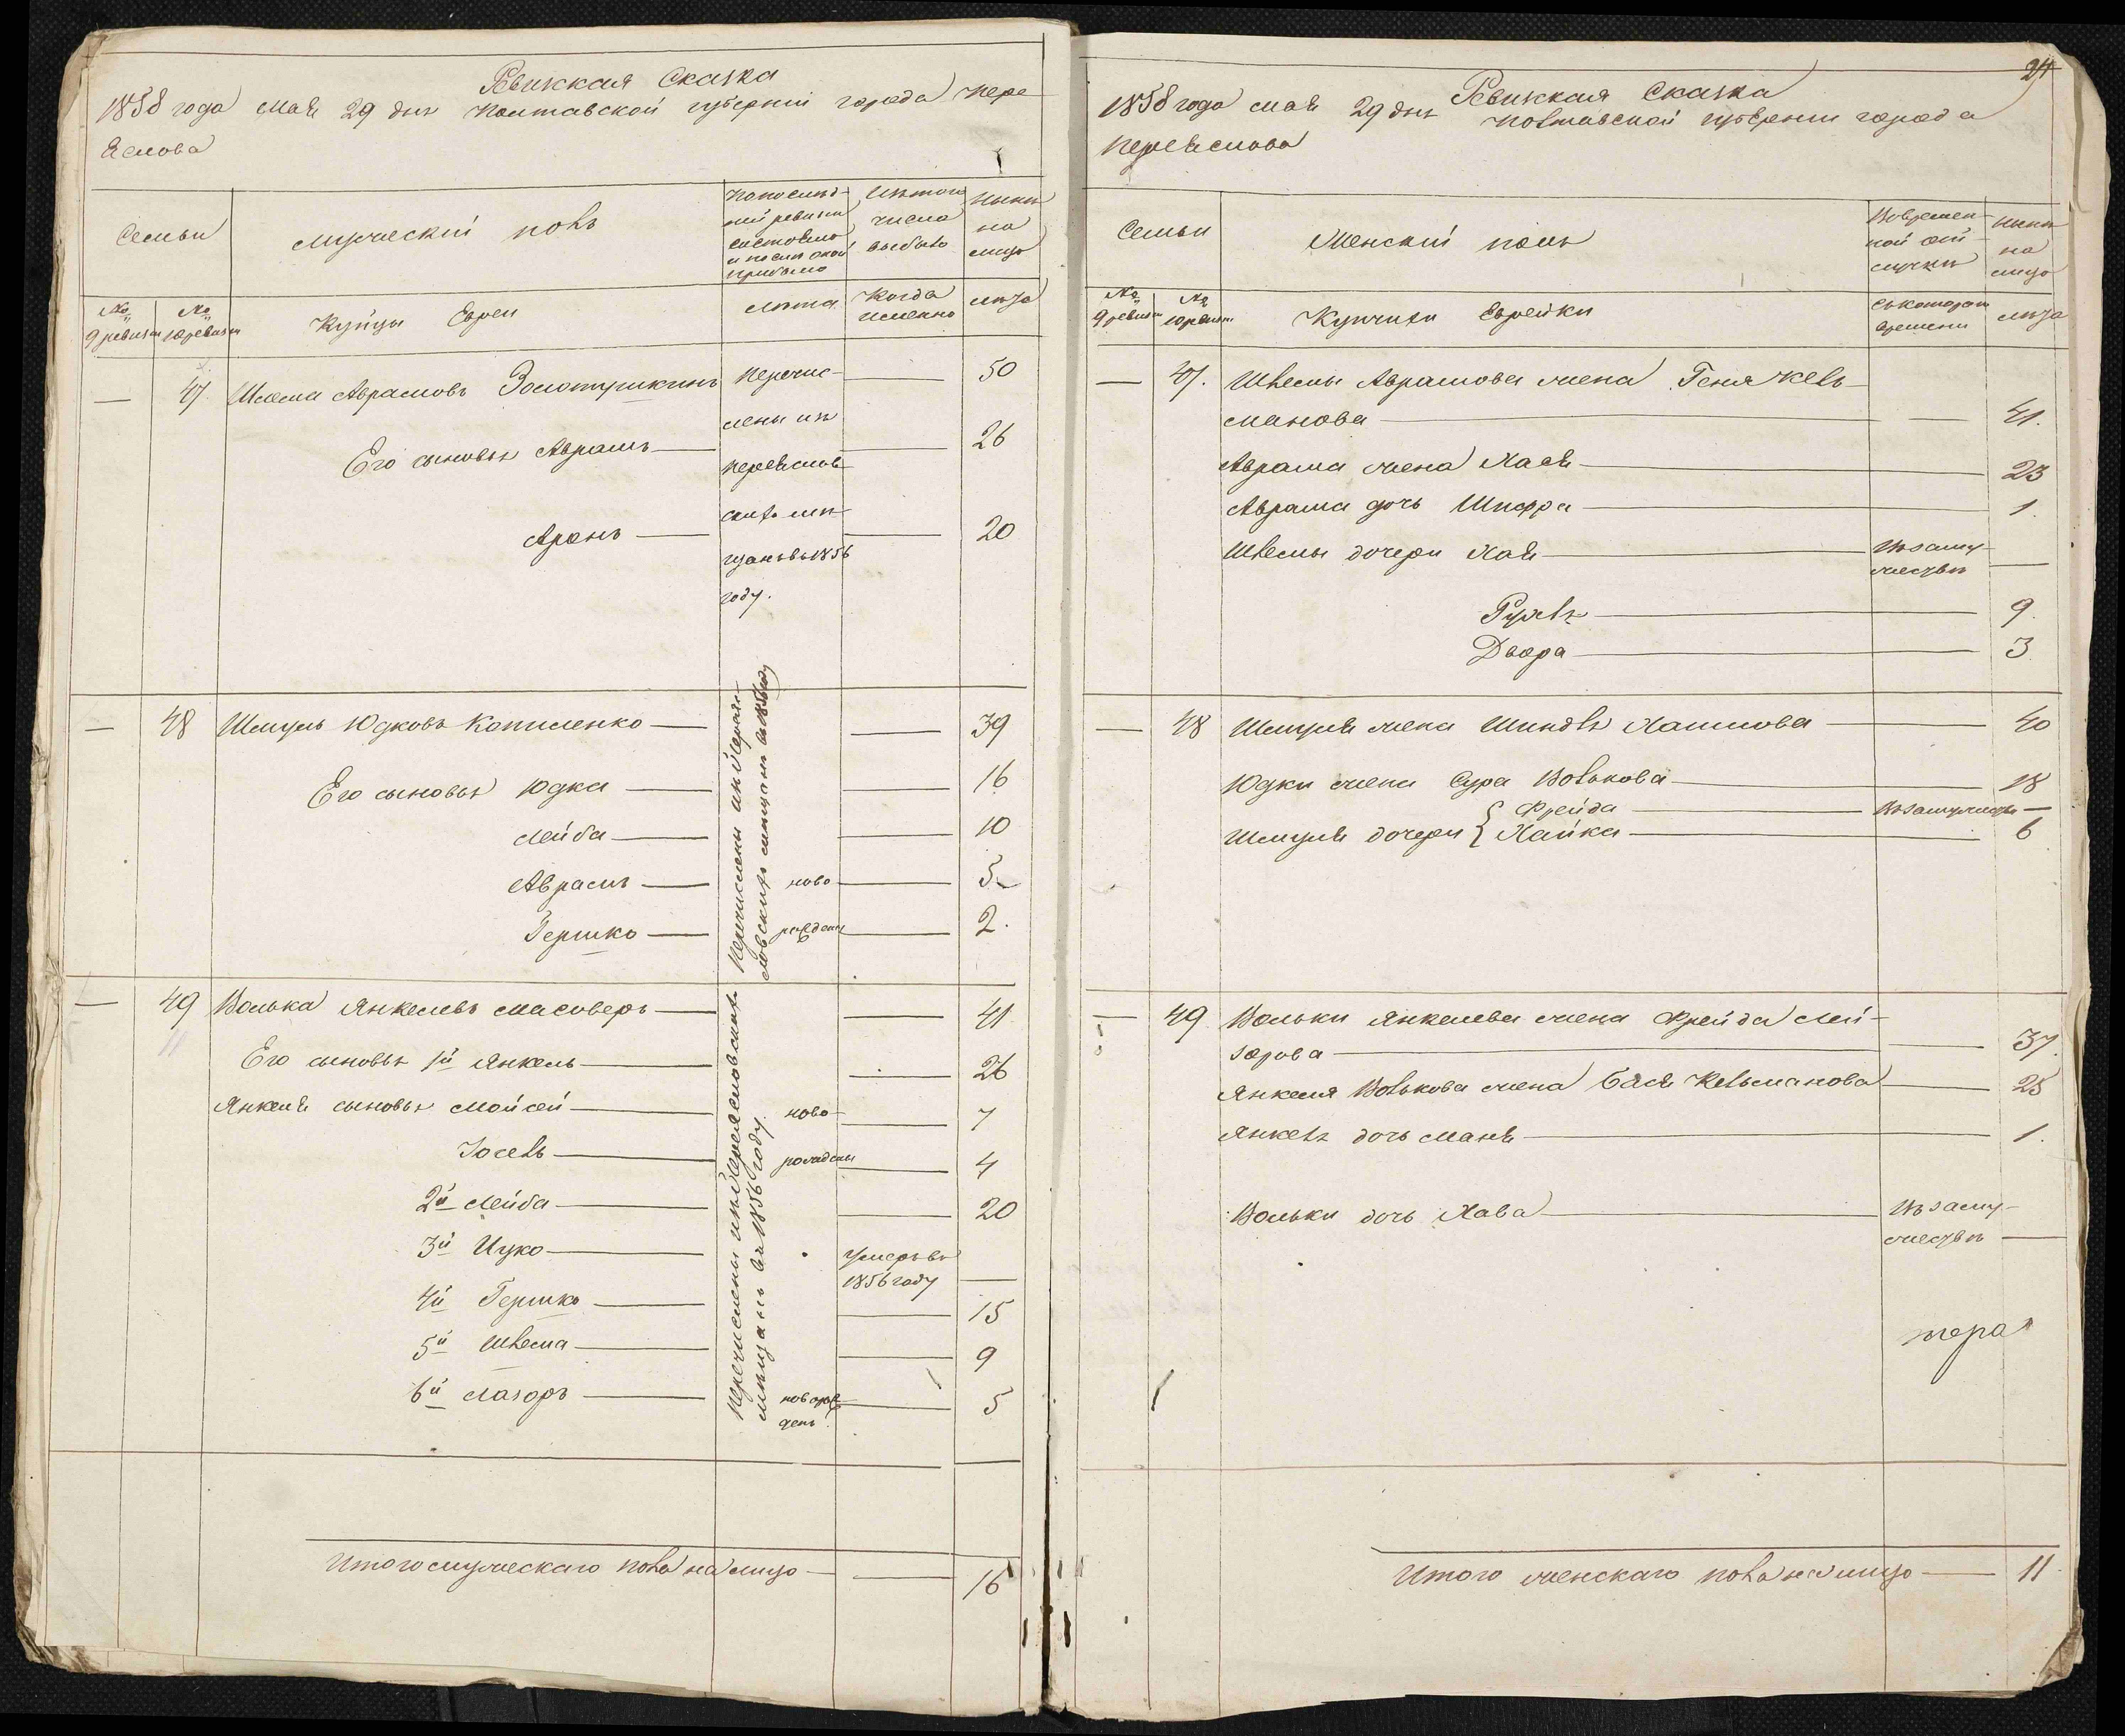 Ревижкая Сказка
1858 года Мая 29 дня Полтавской губернiи города Пере
яслова
Семьи
мужескiй полъ
Попослѣд-
ней ревизiи
состояло
и послѣ оной
прибыло
Изтого
числа
выбыло
Нынѣ
на
лицо
№
9 ревизiи
№
10 ревизiи
Купцы Евреи
лѣта
Когда
именно
лѣта
— 47 Шлема Аврамовъ Золотушкинъ — 50
Перечис-
лены изъ
Переяслов-
скихъ мѣ-
щанъ въ 1856
году.
Его сыновья Аврамъ — 26
Аронъ — 20
— 48 Шмуль Юдковъ Копиленко — 39
Перечислены изъ Переяс-
ловскихъ мѣщанъ въ 1856 году
Его сыновья Юдка — 16
Лейба — 10
Аврамъ — ново — 5
Гершко — рождены — 2.
— 49 Волька Янкелевъ Масоверъ — 41
Перечислены изъ Переясловскихъ
мѣщанъ въ 1856 году.
Его сыновья 1й Янкель — 26
Янкеля сыновья Мойсей — ново — 7
Iосель — рождены — 4
2й Лейба — 20
3й Ицко — Умеръ въ
1856 году —
4й Гершко — 15
5й Шлема — 9
6й Лазоръ — новорож-
денъ — 5
Итого мужескаго пола на лицо — 16
24
Ревижкая Сказка
1858 года мая 29 дня Полтавской губернiи города
Переяслова
Семьи
Женскiй полъ
Вовремен-
ной от-
лучкѣ
Нынѣ
на
лицо
№
9 ревизiи
№
10 ревизiи
Купчихи Еврейки
съкотораго
времени
лѣта
— 47. Шлемы Аврамова жена Геня Кель-
манова — 41.
Аврама жена Хася — 23
Аврама дочь Шифра — 1.
Шлемы дочери Хая — Въ заму-
жествѣ —
Рухля — 9.
Двора — 3
— 48 Шмуля жена Шиндля Хаимова — 40
Юдки жена Сура Волькова — 18
Шмуля дочери { Фрейда — Въ замужествѣ —
Хайка — 6
— 49 Вольки Янкелева жена Фрейда Лей-
зорова — 37.
Янкеля Волькова жена Бася Кельманова — 25
Янкеля дочь Маня — 1.
Вольки дочь Хава — Въ заму-
жествѣ —
Итого женскаго пола на лицо — 11